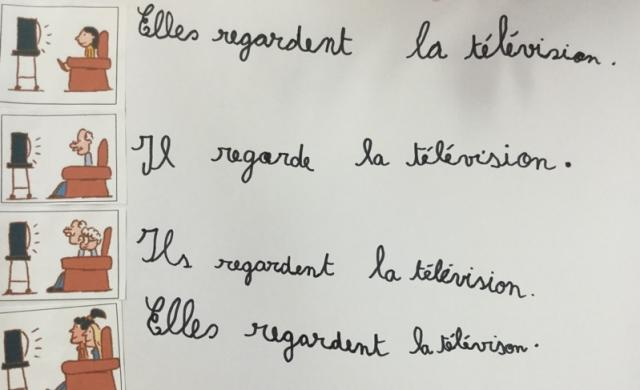 Elles regardent la télévision.
Il regarde la télévision.
Ils regardent la télévision.
Elles regardent la télévison.